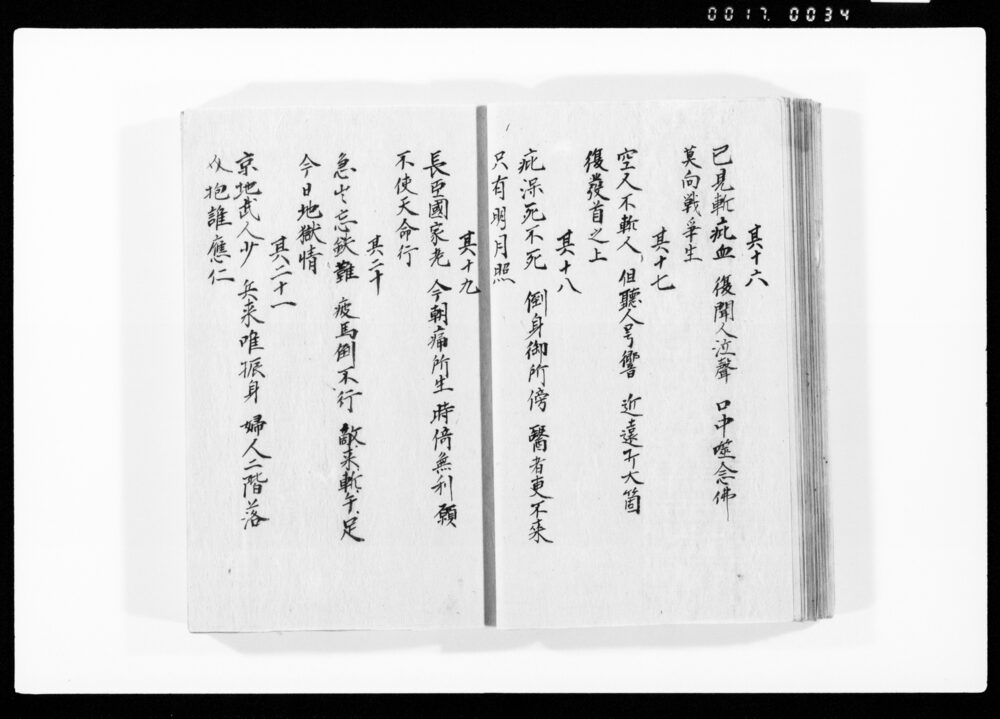 0017. 0034
其十六
已見斬疵血 復聞人泣聲 口中噬念佛
莫向戦爭生
其十七
空人不斬人 但聽人号響 近遠斤大箇
復發首之上
其十八
疵深死不死 倒身御所傍 醫者更不来
只有明月照
其十九
長臣國家老 今朝痛所生 時倍無利 願
不使天命行
其二十
急々忘鉄難 疲馬倒不行 敵来斬午足
今日地獄情
其二十一
京地武人少 兵来唯振身 婦人二階落
抱誰應仁